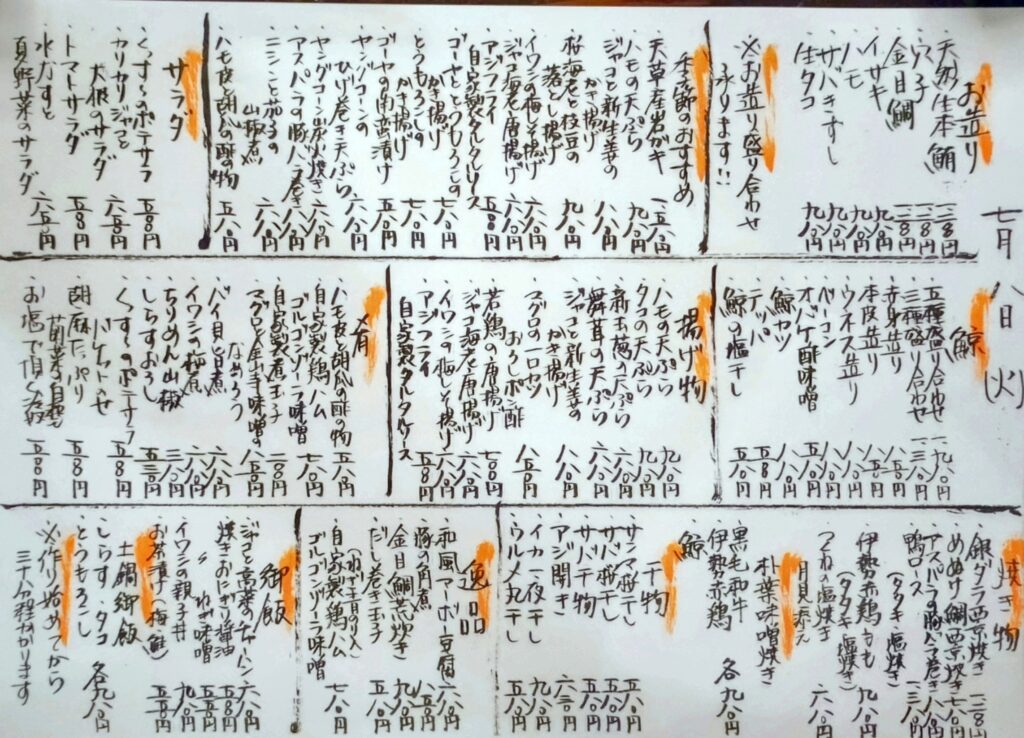 七月八日(火)
お造り
・天然生本鮪 一二八〇円
・穴子 一二八〇円
・金目鯛 一二八〇円
・イサキ 九八〇円
・ハモ 九八〇円
・サバきずし 九八〇円
・生タコ 九八〇円
※お造り盛り合わせ
承ります!!
季節のおすすめ
・天草産岩ガキ 一五八〇円
・ハモの天ぷら 九八〇円
・ジャコと新生姜の
かき揚げ 八八〇円
・桜海老と枝豆の
落とし揚げ 九八〇円
・イワシの梅しそ揚げ 六八〇円
・ジャコ海老唐揚げ 六八〇円
・アジフライ
自家製タルタルソース 五八〇円
・ゴーヤととうもろこしの
かき揚げ 七八〇円
・とうもろこしの
かき揚げ 七八〇円
・ゴーヤの南蛮漬け 五八〇円
・ヤングコーンの
ひげ巻き天ぷら 六八〇円
・ヤングコーン炭火焼き 六八〇円
・アスパラの豚バラ巻き 六八〇円
・ニシンと茄子の
山椒煮 六八〇円
・ハモ皮と胡瓜の酢の物 五八〇円
サラダ
・くずし〜のポテサラ 五八〇円
・カリカリジャコと
大根のサラダ 六八〇円
・トマトサラダ 五八〇円
・水なすと
夏野菜のサラダ 六八〇円
鯨
・五種盛り合わせ 一九八〇円
・三種盛り合わせ 一三八〇円
・赤身造り
・本皮造り
・ウネス造り
・ベーコン
・オバケ酢味噌
・鯨カツ
・テッパ 五八〇円
・鯨の塩干し 五八〇円
揚げ物
・ハモの天ぷら 九八〇円
・タコの天ぷら 九八〇円
・新玉葱の天ぷら
・舞茸の天ぷら 六八〇円
・ジャコと新生姜の
かき揚げ 八八〇円
・マグロの一口カツ
おろしポン酢 八五〇円
・若鶏の唐揚げ 七〇〇円
・ジャコ海老唐揚げ 六八〇円
・イワシの梅しそ揚げ 六八〇円
・アジフライ
自家製タルタルソース 五八〇円
肴
・ハモ皮と胡瓜の酢の物 五八〇円
・自家製鶏ハム
ゴルゴンゾーラ味噌 七八〇円
・自家製煮玉子 二八〇円
・マグロと金山寺味噌の
なめろう 八五〇円
・バイ貝旨煮 六八〇円
・イワシの梅煮 六八〇円
・ちりめん山椒 三八〇円
・しらすおろし 五三〇円
・くずし〜のポテサラ
バケット乗せ 五八〇円
・胡麻だっぷり
五八〇円
・お塩で頂く 五八〇円
焼き物
・銀ダラ西京焼き 一二八〇円
・めぬけ鯛西京焼き
・アスパラの豚バラ巻き
・鴨ロース
(タタキ・塩焼き) 一三八〇円
・伊勢赤鶏もも
(タタキ・塩焼き) 九八〇円
・つくねの塩焼き
月見添え 六八〇円
朴葉味噌焼き
・黒毛和牛
・伊勢赤鶏
・鯨 各九八〇円
干物
・サンマ桜干し 五八〇円
・サバ桜干し 五八〇円
・サバ干物 五八〇円
・アジ開き 六三〇円
・イカ一夜干し 九八〇円
・ウルメ丸干し 五八〇円
逸品
・和風マーボー豆腐 六八〇円
・豚の角煮 八五〇円
・金目鯛荒炊き 九八〇円
・だし巻き玉子
(ねぎ・青のり入) 五八〇円
・自家製鶏ハム
ゴルゴンゾーラ味噌 七八〇円
御飯
・ジャコと高菜のチャーハン 六八〇円
・焼きおにぎり醤油 五八〇円
・〃 ねぎ味噌 五八〇円
・イワシの親子丼 九八〇円
・お茶漬(梅・鮭) 五五〇円
土鍋御飯
・しらす・タコ
・とうもろこし 各九八〇円
※作り始めてから
三十分程かかります